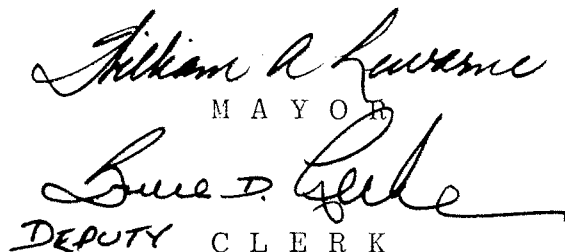 William A Lewarne
MAYOR
Bruce D.
DEPUTY CLERK